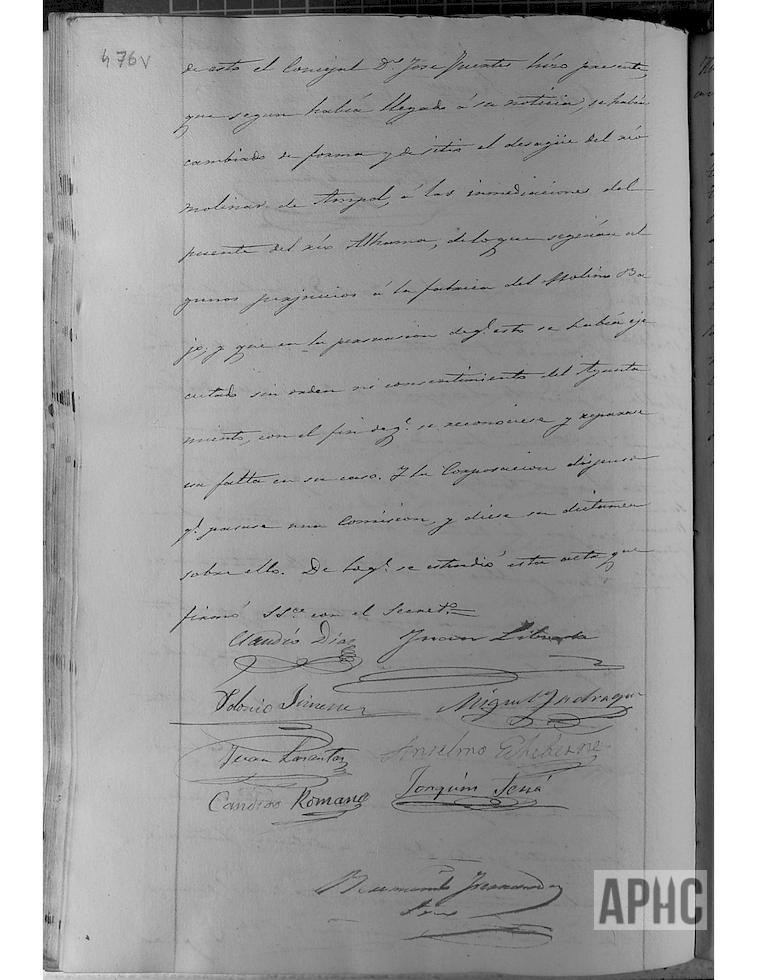 476v
de esto el Concejal Dn. Jose Puentes hizo presente,
que segun habia llegado á su noticia, se habia
cambiado de forma y de sitio el desagüe del rio
molinar de Ampol, á las inmediaciones del
puente del rio Alhama, de lo que seguian al
gunos perjuicios á la fabrica del Molino Ba
jo; y que en la persuasion de q.e esto se habia eje
cutado sin orden ni consentimiento del Ayunta
miento, con el fin de q.e se reconociese y reparase
esa falta en su caso. Y la Corporacion dispuso
q.e pasase una Comision, y diese su dictamen
sobre ello. De lo q.e se estendió esta acta que
firmó SSce con el Secret.o
Claudio Diaz Juan
Jimenez Miguel Yndraque
Juan Anselmo Echeberre
Candido Romano Joaquin
APHC